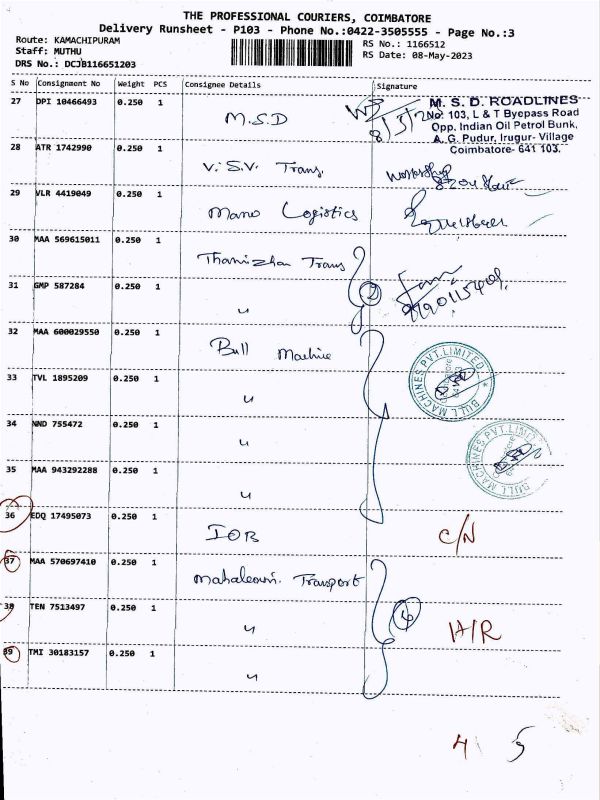 THE PROFESSIONAL COURIERS, COIMBATORE
Delivery Runsheet - P103 - Phone No.:0422-3505555 - Page No.:3
Route: KAMACHIPURAM
Staff: MUTHU
DRS No.: DCJB116651203
RS No.: 1166512
RS Date: 08-May-2023
S No Consignment No Weight PCS Consignee Details Signature
27 DPI 10466493 0.250 1 M.S.D
M. S. D. ROADLINES
No: 103, L & T Byepass Road
Opp. Indian Oil Petrol Bunk,
A. G. Pudur, Irugur- Village
Coimbatore- 641 103.
28 ATR 1742990 0.250 1 V.S.V. Trans.
29 VLR 4419049 0.250 1 Mano Logistics
30 MAA 569615011 0.250 1 Thamizhan Trans
31 GMP 587284 0.250 1 "
32 MAA 600029550 0.250 1 Bull Machine
BULL MACHINES PVT.LIMITED
33 TVL 1895209 0.250 1 "
34 NND 755472 0.250 1 "
35 MAA 943292288 0.250 1 "
36 EDQ 17495073 0.250 1 IOB C/N
37 MAA 570697410 0.250 1 Transport
38 TEN 7513497 0.250 1 "
39 TMI 30183157 0.250 1 "
4 5